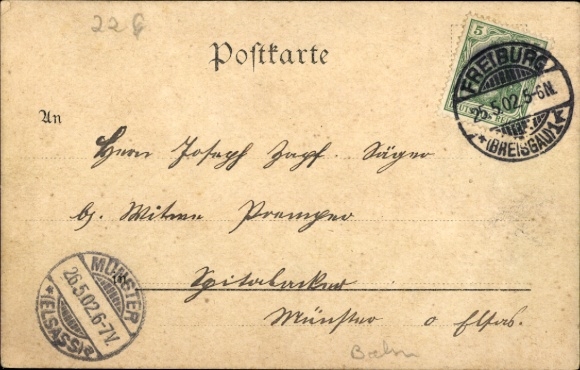 22 6
Postkarte
5
FREIBURG
25.5.02.5-6N.
*(BREISGAU)*
An
Herrn Joseph Zapf. Säger
bj. Witwe
Münster o Elsas.
MÜNSTER
26.5.02.6-7V.
*(ELSASS)*